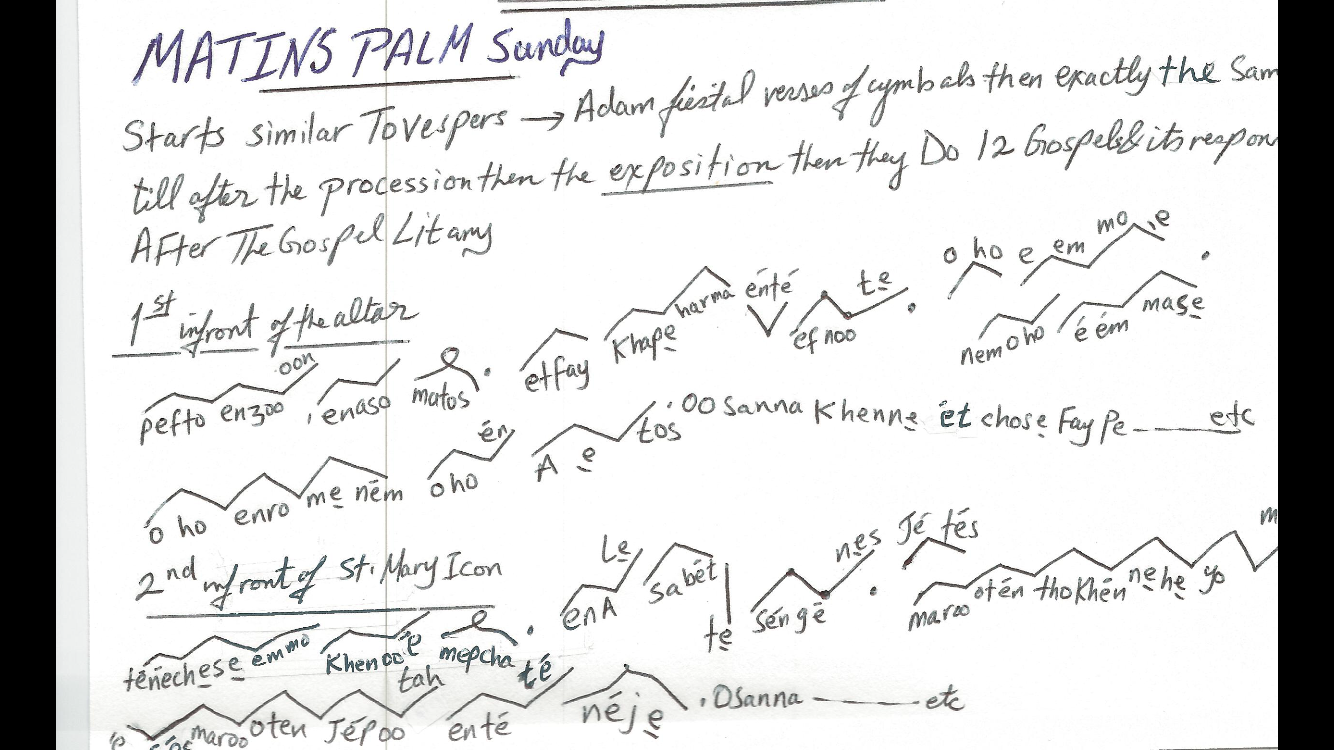 MATINS PALM Sunday
Starts similar To vespers → Adam fiestal verses of cymbals then exactly the Sam
till after the procession then the exposition then they Do 12 Gospels & its respon
AFter The Gospel Litany
1st infront of the altar
pefto enzoo oon , enaso matos . etfay Khape harma énté ef noo te . o ho e em mo e nem oho é ém mase .
o ho enro me ném oho én A e tos . OO Sanna Khenne ét chose Fay Pe ——— etc
2nd infront of St. Mary Icon
ténechese emmo Khenoo é mepcha . en A Le sabét te sén gé nes . Jé tés maroo otén tho Khén ne he yo m
maroo oten Jé poo tah enté té néje . Osanna ——— etc